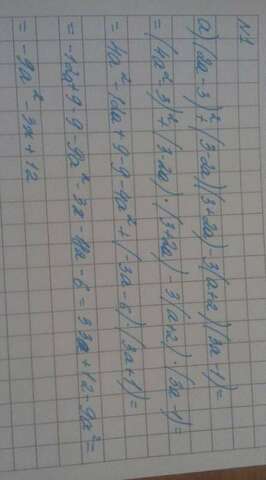 N1
а) (2a-3)²+(3-2a)(3+2a)-3(a+2)(3a-1)=
=(4a²-3)²+(3-2a)·(3+2a)-3(a+2)·(3a-1)=
=4a²-12a+9-9-4a²+(-3a-6)·(3a+1)=
=-12a+9-9-9a²-3a-18a-6=33a+12-9a²=
=-9a²-3a+12